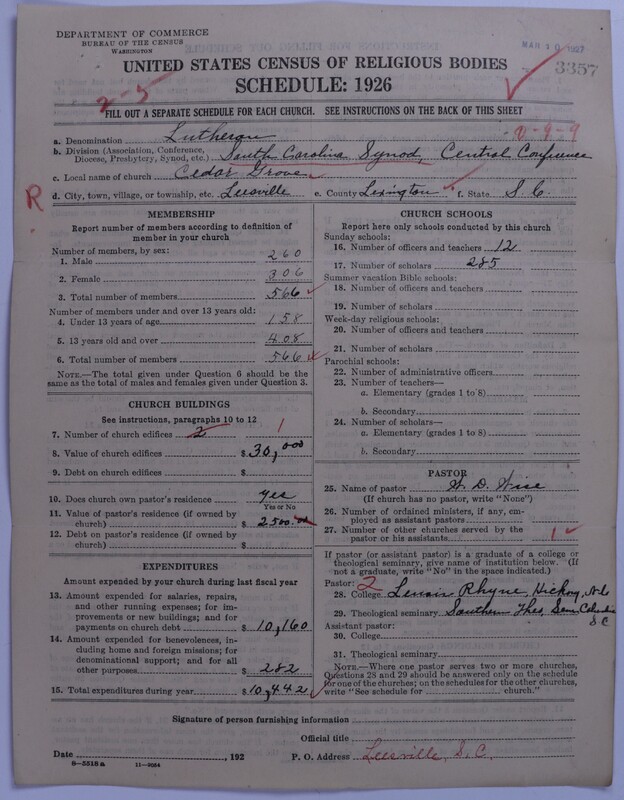 DEPARTMENT OF COMMERCE
BUREAU OF THE CENSUS
WASHINGTON
MAR 10 1927
3357
UNITED STATES CENSUS OF RELIGIOUS BODIES
SCHEDULE: 1926
2-5
FILL OUT A SEPARATE SCHEDULE FOR EACH CHURCH. SEE INSTRUCTIONS ON THE BACK OF THIS SHEET
a. Denomination Lutheran
b. Division (Association, Conference, Diocese, Presbytery, Synod, etc.) South Carolina Synod, Central Conference
c. Local name of church Cedar Grove
R
d. City, town, village, or township, etc. Leesville e. County Lexington f. State S. C.
MEMBERSHIP
Report number of members according to definition of member in your church
Number of members, by sex:
1. Male 260
2. Female 306
3. Total number of members 566
Number of members under and over 13 years old:
4. Under 13 years of age 158
5. 13 years old and over 408
6. Total number of members 566
NOTE.—The total given under Question 6 should be the same as the total of males and females given under Question 3.
CHURCH BUILDINGS
See instructions, paragraphs 10 to 12
7. Number of church edifices 2 1
8. Value of church edifices $ 30,000
9. Debt on church edifices $
10. Does church own pastor's residence yes
Yes or No
11. Value of pastor's residence (if owned by church) $ 2500.00
12. Debt on pastor's residence (if owned by church) $
EXPENDITURES
Amount expended by your church during last fiscal year
13. Amount expended for salaries, repairs, and other running expenses; for improvements or new buildings; and for payments on church debt $ 10,160
14. Amount expended for benevolences, including home and foreign missions; for denominational support; and for all other purposes $ 282
15. Total expenditures during year $ 10,442
CHURCH SCHOOLS
Report here only schools conducted by this church
Sunday schools:
16. Number of officers and teachers 12
17. Number of scholars 285
Summer vacation Bible schools:
18. Number of officers and teachers
19. Number of scholars
Week-day religious schools:
20. Number of officers and teachers
21. Number of scholars
Parochial schools:
22. Number of administrative officers
23. Number of teachers—
a. Elementary (grades 1 to 8)
b. Secondary
24. Number of scholars—
a. Elementary (grades 1 to 8)
b. Secondary
PASTOR
25. Name of pastor W. D. Wise
(If church has no pastor, write "None")
26. Number of ordained ministers, if any, employed as assistant pastors
27. Number of other churches served by the pastor or his assistants 1
If pastor (or assistant pastor) is a graduate of a college or theological seminary, give name of institution below. (If not a graduate, write "No" in the space indicated.)
Pastor: 2
28. College Lenoir Rhyne, Hickory, N.C.
29. Theological seminary Southern Theo. Sem. Columbia S.C.
Assistant pastor:
30. College
31. Theological seminary
NOTE.—Where one pastor serves two or more churches, Questions 28 and 29 should be answered only on the schedule for one of the churches; on the schedules for the other churches, write "See schedule for church."
Signature of person furnishing information
Official title
Date , 192 P. O. Address Leesville, S.C.
8-5518 a 11-9054